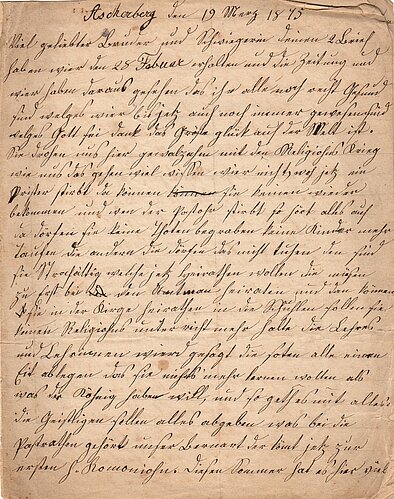 Ascherberg den 19 Merz 1875
Viel geliebter Bruder und Schwiegerin deinen 2 Brief
haben wier den 28 Februar erhalten und die Zeitung und
wier haben daraus gesehen das ihr alle noch recht Gesund
seid welges wier bis jetz auch noch immer gewesen sind
welges Gott sei dank das Große glück auf der Welt ist.
Sie drohen uns hier mit den Religiohns Krieg
wie uns das gehen viel wissen wier nicht, wo jetz ein
Prister stirbt da können sie keinen wieder
bekommen und wen der Pastohr stirbt so hört alles auf
da dörfen sie keine Thoten begraben keine Kinder mehr
taufen die andern die dörfen das nicht tuhen den sind
sie Straffältig welche jetz heirathen wollen die müßen
zu erst bei den Amtman heiraten und den können
sie in der Kirge heirathen in die Schuhlen sollen sie
keinen Religiohns unter richt mehr halte die Lehrer
und Lehrinnen wierd gesagt die soten alle einen
Eit ablegen das sie nichts mehr lernen wollen als
was der Köhnig haben will, und so geth es mit alles
die Geistligen sollen alles abgeben was bei die
Pastrathen gehört unser Bernart der kömt jetz zur
ersten H. Komoniohn. Diesen Sommer hat es hier viel